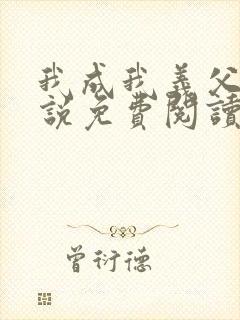 我成我義父
說免費閱讀
曾衍德